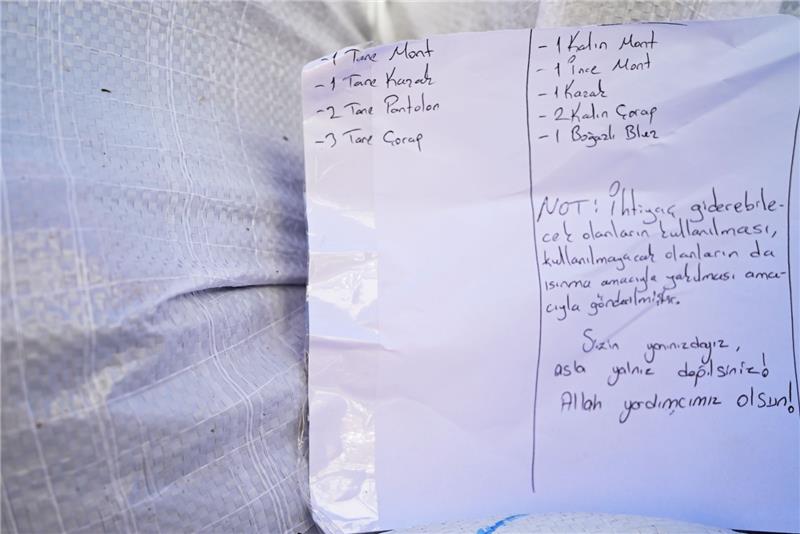 -1 Tane Mont
-1 Tane Kazak
-2 Tane Pantolon
-3 Tane Çorap
-1 Kalın Mont
-1 İnce Mont
-1 Kazak
-2 Kalın Çorap
-1 Boğazlı Bluz
NOT: İhtiyaç giderebile-
cek olanların kullanılması,
kullanılmayacak olanların da
ısınma amacıyla yakılması ama-
cıyla gönderilmiştir.
Sizin yanınızdayız,
asla yalnız değilsiniz!
Allah yardımcımız olsun!